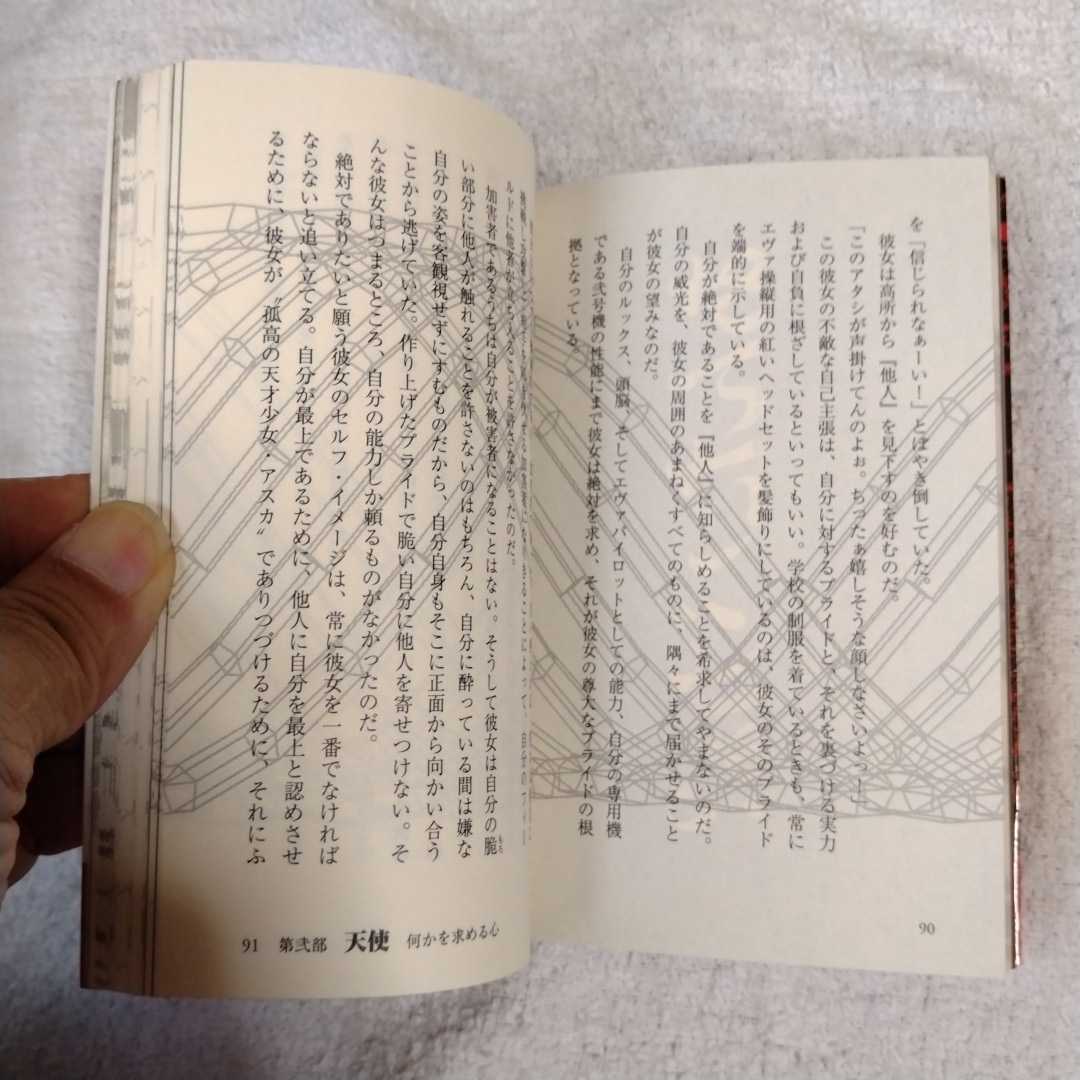 を『信じられなぁーい！』とぼやき倒していた。
彼女は高所から『他人』を見下すのを好むのだ。
「このアタシが声掛けてんのよぉ。ちったぁ嬉しそうな顔しなさいよっ！」
この彼女の不敵な自己主張は、自分に対するプライドと、それを裏づける実力
および自負に根ざしているといってもいい。学校の制服を着ているときも、常に
エヴァ操縦用の紅いヘッドセットを髪飾りにしているのは、彼女のそのプライド
を端的に示している。
自分が絶対であることを『他人』に知らしめることを希求してやまないのだ。
自分の威光を、彼女の周囲のあまねくすべてのものに、隅々にまで届かせること
が彼女の望みなのだ。
自分のルックス、頭脳、そしてエヴァパイロットとしての能力、自分の専用機
である弐号機の性能にまで彼女は絶対を求め、それが彼女の尊大なプライドの根
拠となっている。
90
ルドに他者が立ち入ることを許さなかったのだ。
加害者であるうちは自分が被害者になることはない。そうして彼女は自分の脆
い部分に他人が触れることを許さないのはもちろん、自分に酔っている間は嫌な
自分の姿を客観視せずにすむものだから、自分自身もそこに正面から向かい合う
ことから逃げていた。作り上げたプライドで脆い自分に他人を寄せつけない。そ
んな彼女はつまるところ、自分の能力しか頼るものがなかったのだ。
絶対でありたいと願う彼女のセルフ・イメージは、常に彼女を一番でなければ
ならないと追い立てる。自分が最上であるために、他人に自分を最上と認めさせ
るために、彼女が〝孤高の天才少女・アスカ〟でありつづけるために、それにふ
91 第弐部 天使 何かを求める心